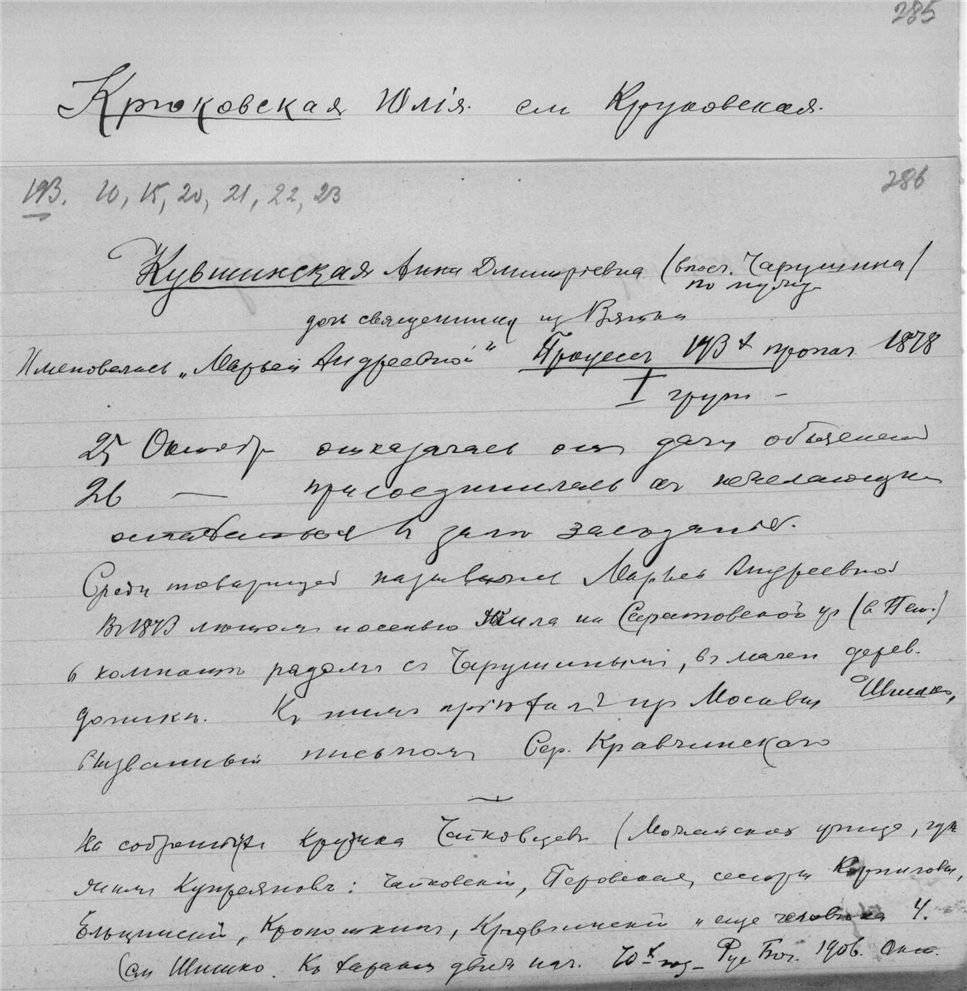 285
Крюковская Юлія. см Круковская.
286
193. 10, 15, 20, 21, 22, 23
Кувшинская Анна Дмитріевна (впосл. Чарушина)
по мужу
дочь священника из Вятки
Именовалась „Марьей Андреевной" Процесс 193х 1878
I груп —
25 Октябр отказалась от дачи объяснений
26 — присоединилась къ нежелающим
оставаться в залѣ засѣданія.
Среди товарищей называлась Марьей Андреевной
Въ 1873 лѣтомъ и осенью жила на Саратовской ул (в Пет.)
в комнатѣ рядомъ съ Чарушинымъ, въ мален дерев.
домике. Къ нимъ пріѣхалъ из Москвы Шишко,
вызванный письмомъ Сер. Кравчинскаго
На собраніи кружка Чайковцевъ (Можайская улице, гдѣ
жилъ Купреяновъ: Чайковскій, Перовская, сестры Корниловы,
Ельцинскій, Кропоткинъ, Кравчинскій и еще человѣка 4.
См Шишко. Къ характ движ нач. 70х год — Рус Бог. 1906. Окт.